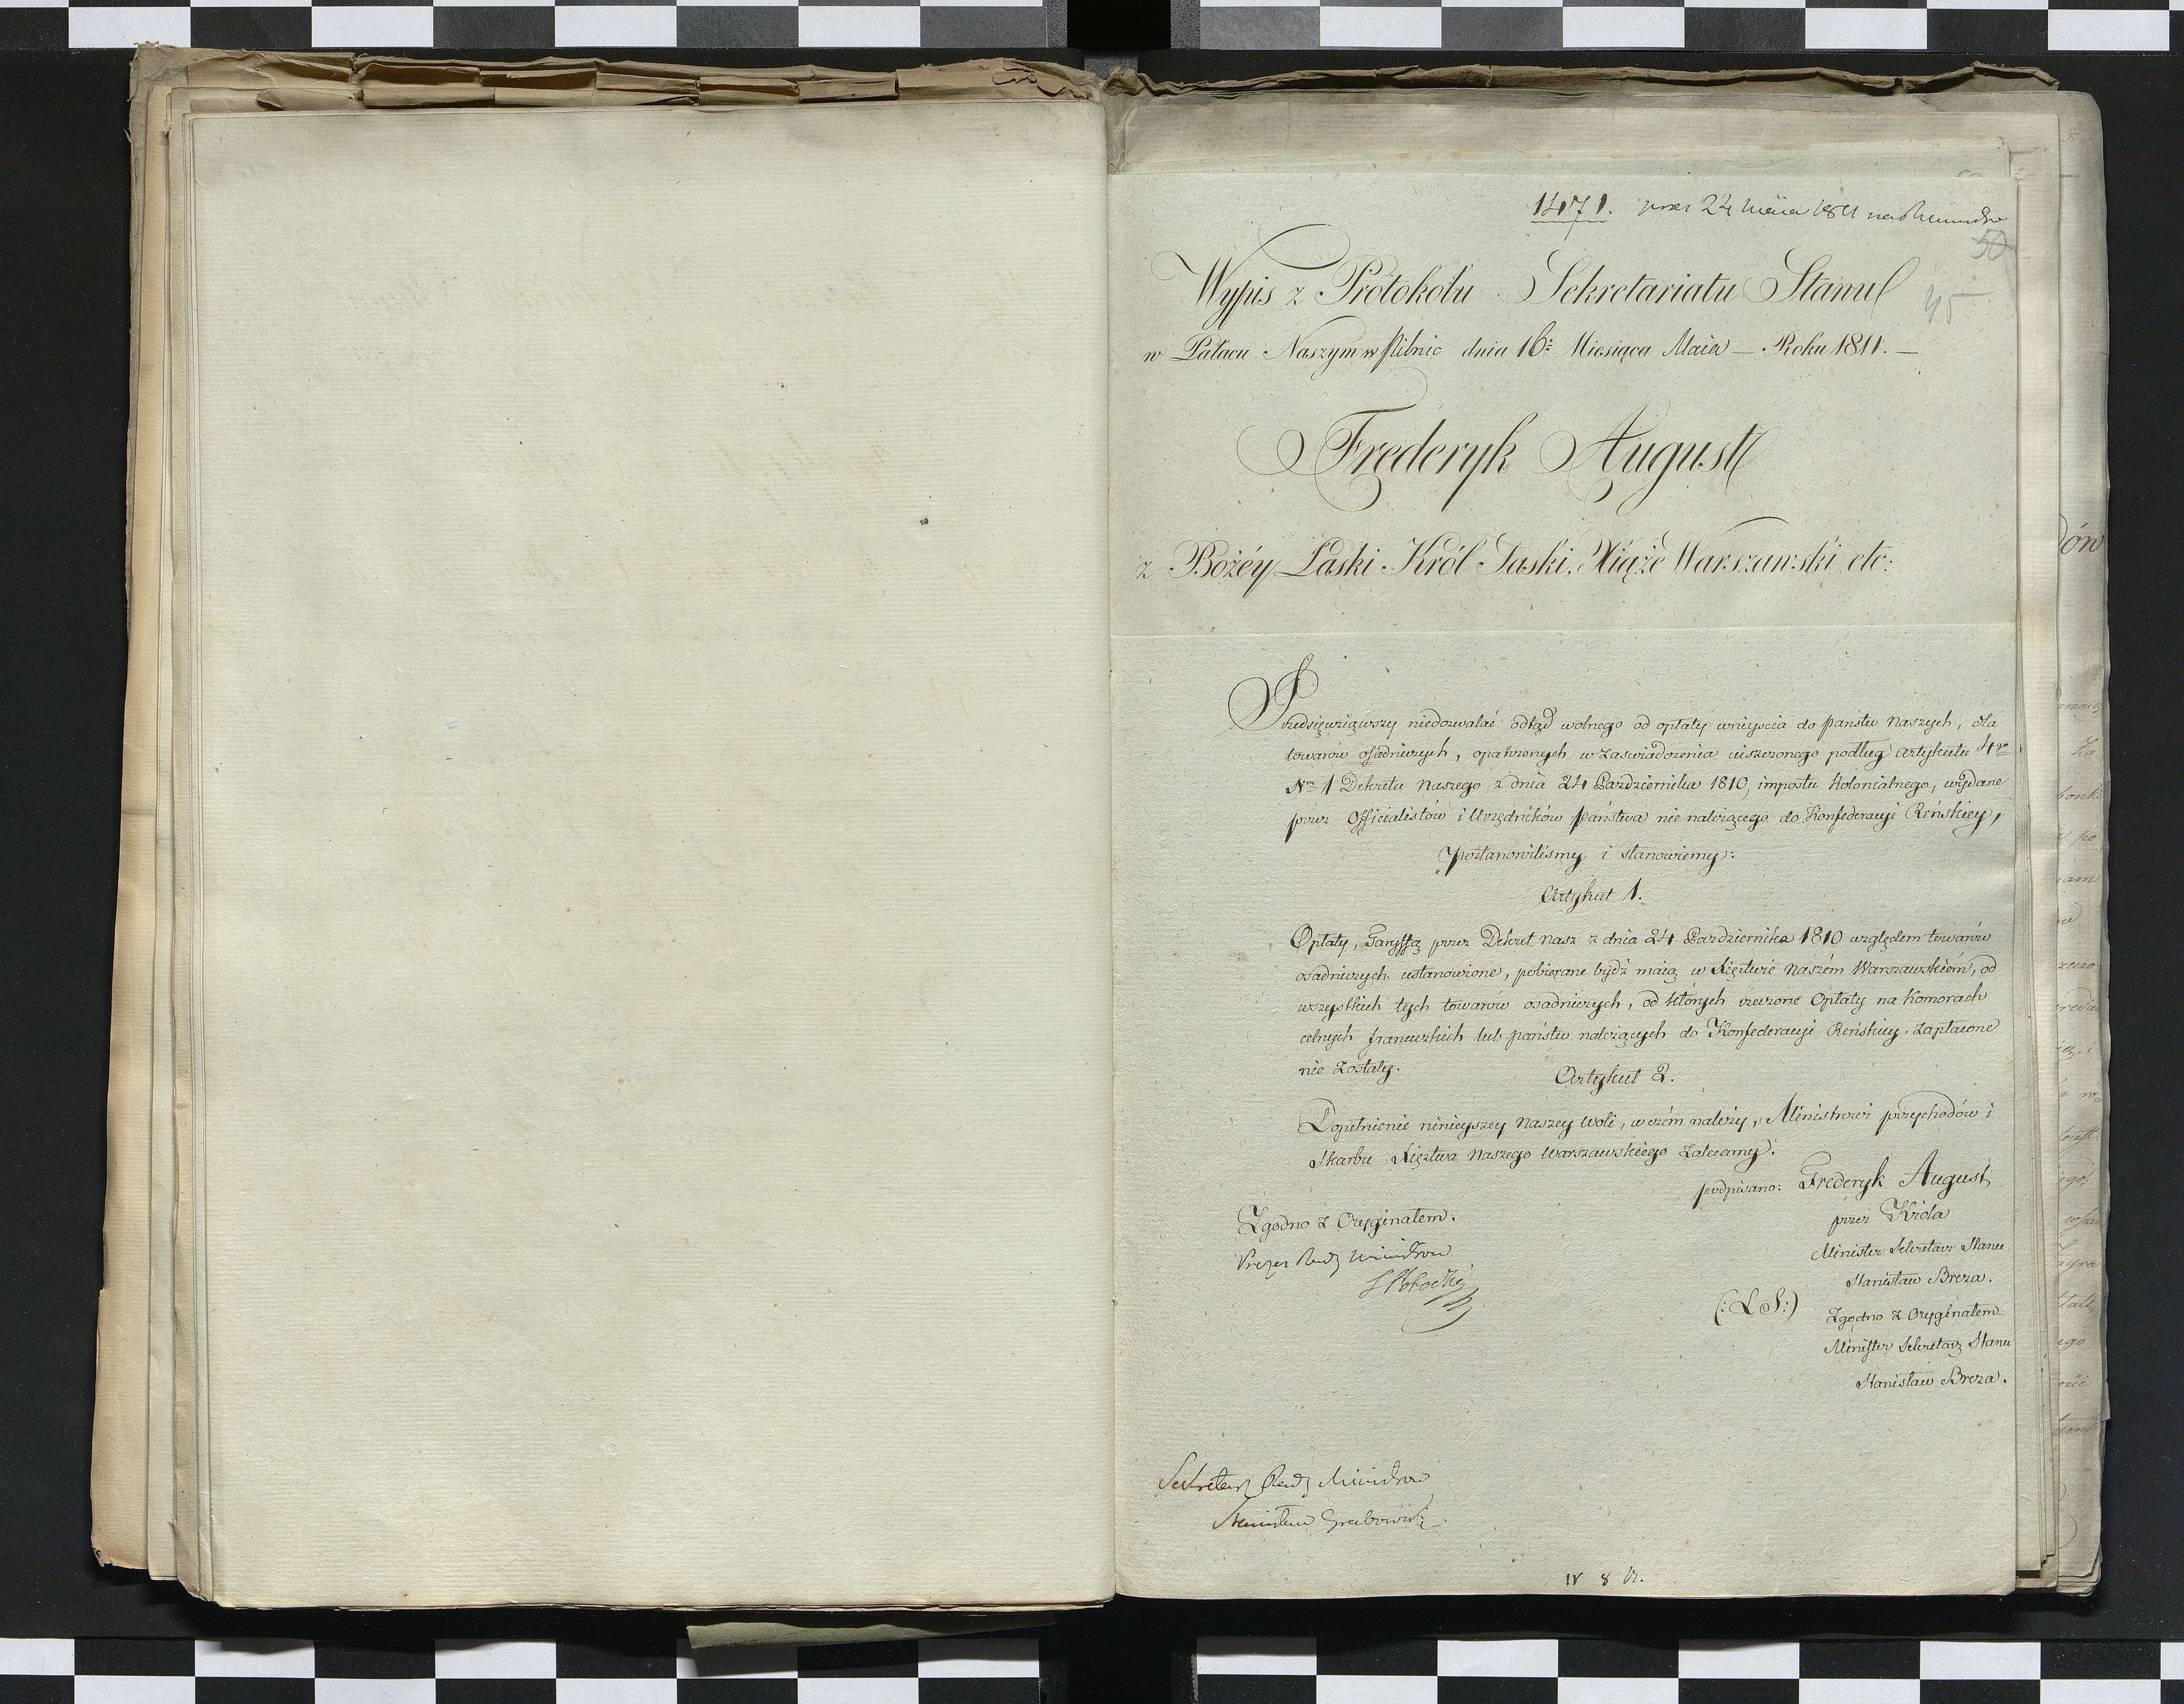 1471. 24 Maia 1811
50
45
Wypis z Protokołu Sekretariatu Stanu
w Pałacu Naszym w Pilnic dnia 16: Miesiąca Maia — Roku 1811. —
Frederyk August
z Bożéy Łaski Król Saski, Xiąże Warszawski etc:
Przedsięwziąwszy niedozwalać odtąd wolnego od opłaty wniyścia do państw Naszych, dla
towarów osadniczych, opatrzonych w zaświadczenia uiszczonego podług Artykułu 4go
Nro 1 Dekretu Naszego z dnia 24 Października 1810, impostu Kolonialnego, wydane
przez Officialistów i Urzędników państwa nie należącego do Konfederacyi Reńskiey,
Postanowiliśmy i stanowiemy:
Artykuł 1.
Opłaty, Taryffą przez Dekret Nasz z dnia 24 Października 1810 względem towarów
osadniczych ustanowione, pobierane bydź maią w Xięztwie Naszém Warszawskiém, od
wszystkich tych towarów osadniczych, od których rzeczone Opłaty na Komorach
celnych francuzkich lub państw należących do Konfederacyi Reńskiey zapłacone
nie zostały.
Artykuł 2.
Dopełnienie ninieyszey Naszey woli, w czém należy, Ministrowi przychodów i
Skarbu Xięztwa Naszego Warszawskiego zalecamy.
podpisano: Frederyk August
przez Króla
Minister Sekretarz Stanu
Stanisław Breza.
(: L. S :)
Zgodno z Oryginałem
Minister Sekretarz Stanu
Stanisław Breza.
Zgodno z Oryginałem.
Prezes Rady Ministrow
S Potocki
Sekretarz Rady Ministrow
Stanisław Grabowski